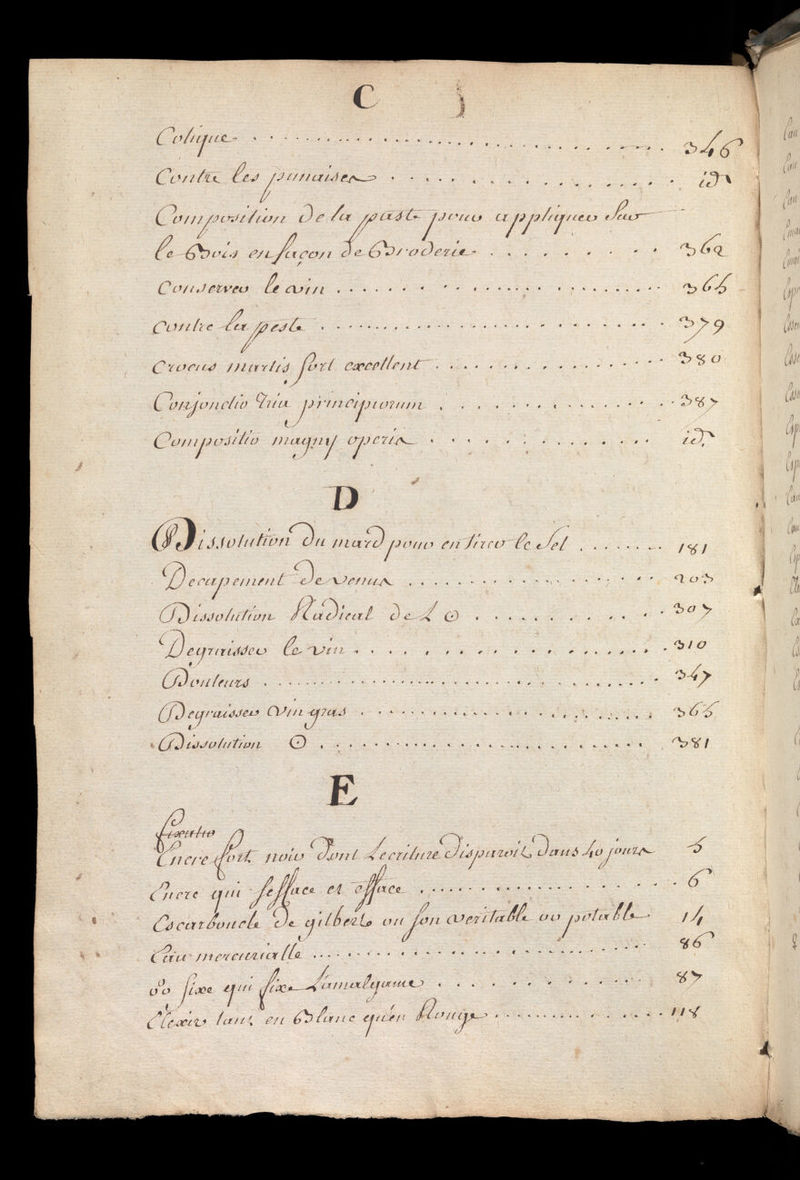 C
Colique . . . . 346
Contre les punaises . . . . id.
Composition de la paste pour appliquer sur
le Bois en façon de Broderie . . . . 362
Conserver le vin . . . . 365
Contre la peste . . . . 379
Crocus martis fort excellent . . . . 380
Conjonctio Triu principiorum . . . . 387
Compositio magny operis . . . . id.
D
Dissolution du mard pour en tirer le Sel . . . . 181
Decapement de venus . . . . 203
Dissolution Radical de L ☉ . . . . 307
Degraisser le vin . . . . 310
Douleurs . . . . 347
Degraisser Vin gras . . . . 365
Dissolution ☉ . . . . 381
E
Encre fort noir dont Lecriture disparoit dans 40 jours 5
Encre qui sefface et efface . . . . 6
Escarboucle de gilbert ou son veritable or potable 14
Eau mercurialle . . . . 86
fixe qui fixe L'amalgame . . . . 87
Elexir tant en Blanc qu'en Rouge . . . . 118